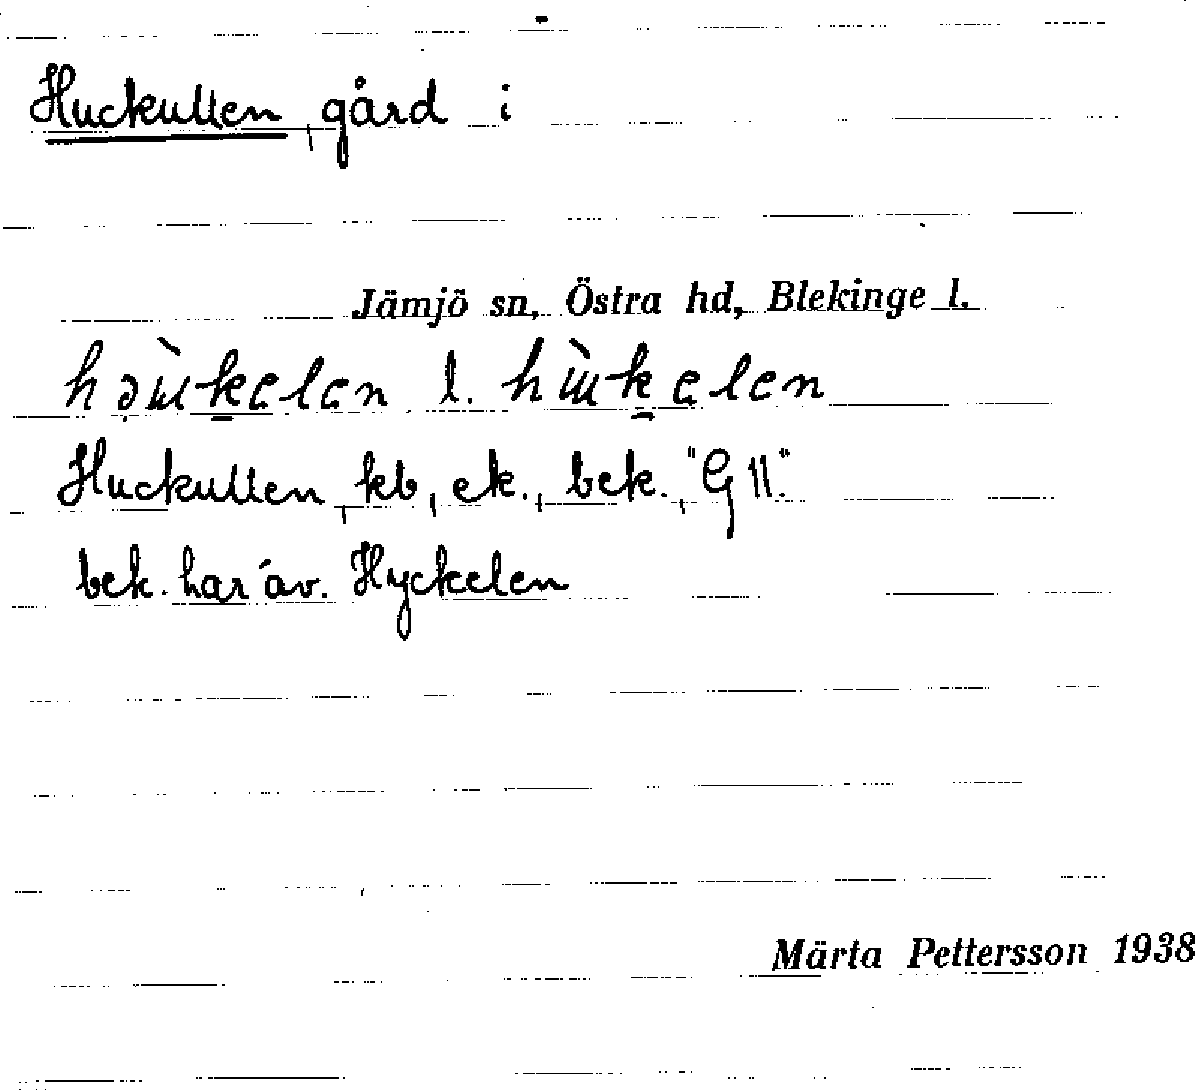 Huckullen, gård i
Jämjö sn, Östra hd, Blekinge l.
l.
Huckullen, kb, ek., bek., "G 11".
bek. har äv. Hyckelen
Märta Pettersson 1938